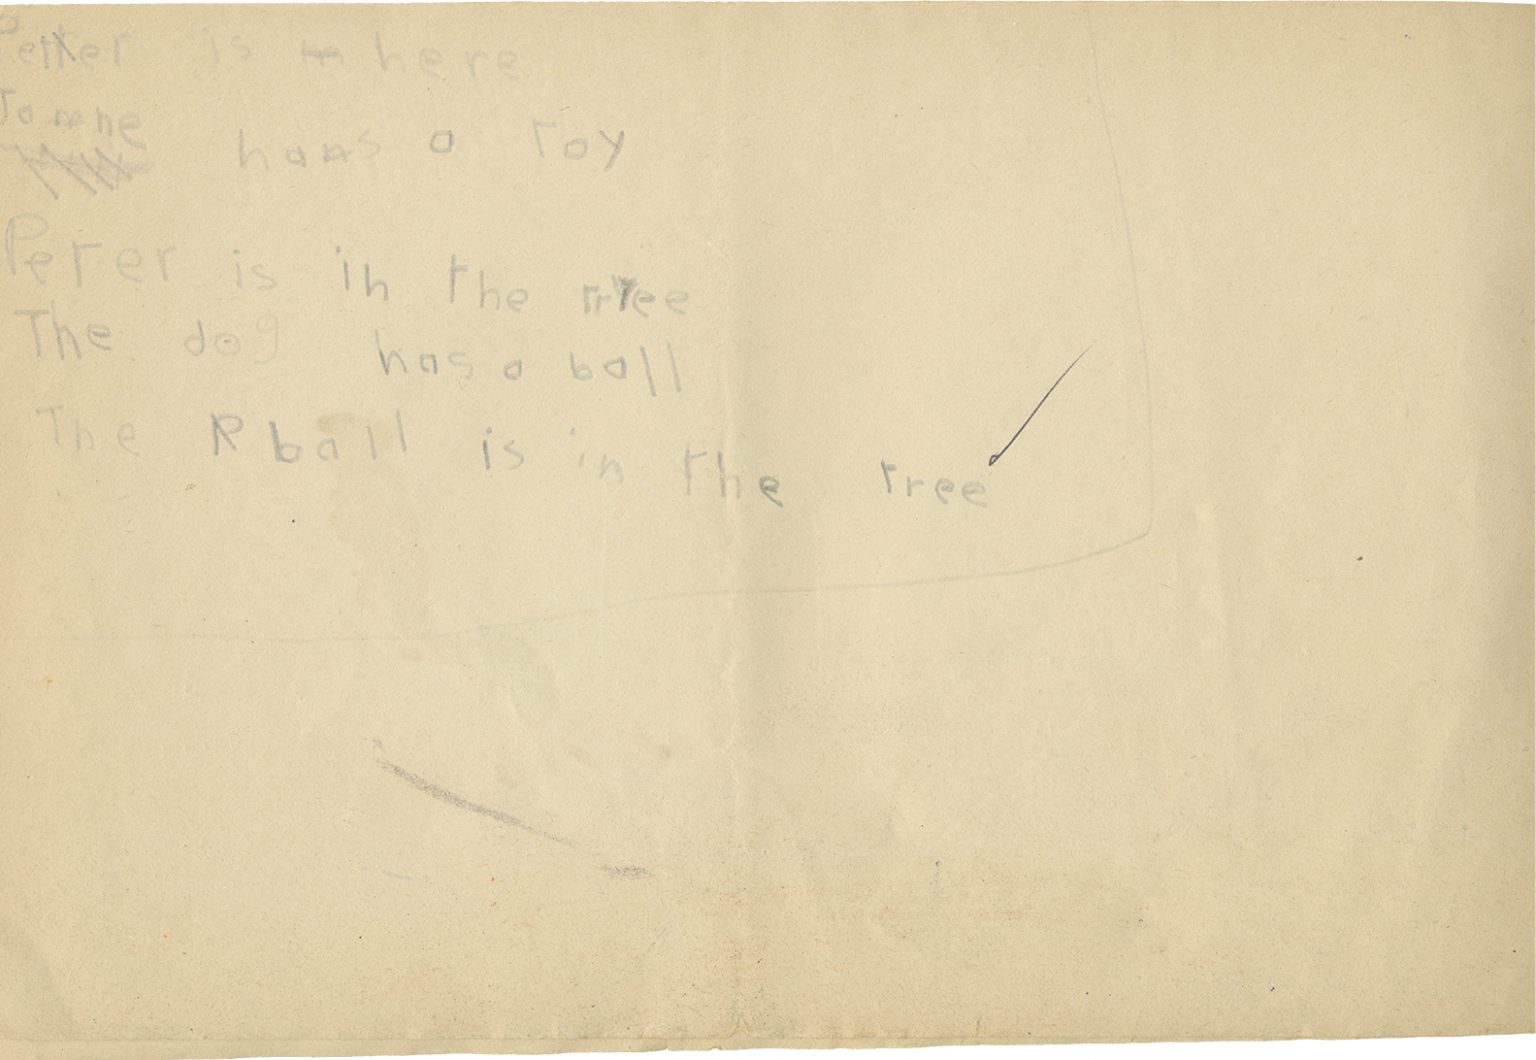 Peter is here
Jane has a toy
Peter is in the tree
The dog has a ball
The ball is in the tree